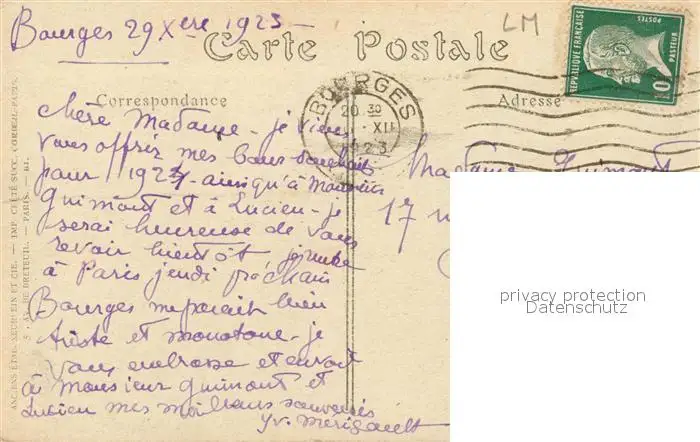 Bourges 29 Xere 1923
LM
Carte Postale
Correspondance
Adresse
BOURGES
20 30
XII
1923
REPUBLIQUE FRANÇAISE
POSTES
PASTEUR
10
Chère Madame - je viens
vous offrir mes bons souhaits
pour 1924 - ainsi qu'à Monsieur
Guimont et à Lucien - je
serai heureuse de vous
revoir bientôt je rentre
à Paris jeudi prochain
Bourges me paraît bien
triste et monotone - je
vous embrasse et envoie
à Monsieur Guimont et
Lucien mes meilleurs souvenirs
Yv. Mérigault
Madame Guimont
17
privacy protection
Datenschutz
ANCIENS ETAB. NEURDEIN ET CIE. — IMP. CRÉTÉ SUCC. CORBEIL-PARIS.
DE BRETEUIL. — PARIS.